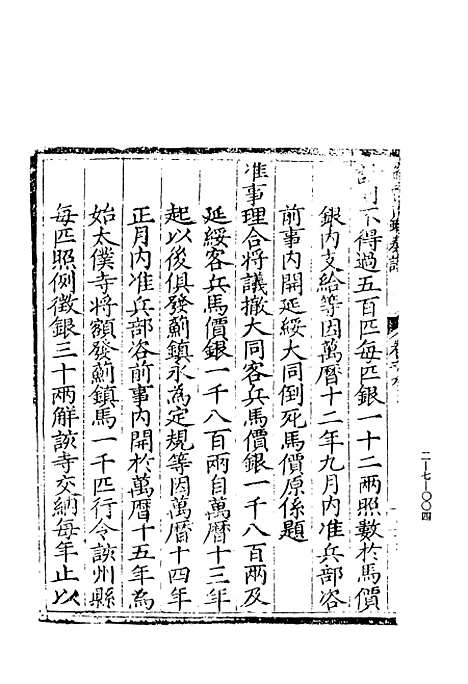 不得過五百匹每匹銀一十二兩照數於馬價
銀内支給等因萬曆十二年九月内准兵部咨
前事内開延綏大同倒死馬價原係題
准事理合將議撤大同客兵馬價銀一千八百兩及
延綏客兵馬價銀一千八百兩自萬曆十三年
起以後俱發薊鎮永為定規等因萬曆十四年
正月内准兵部咨前事内開於萬曆十五年為
始太僕寺將額發薊鎮馬一千匹行令該州縣
每匹照例徵銀三十兩解該寺交納每年止以
二—七—〇〇四